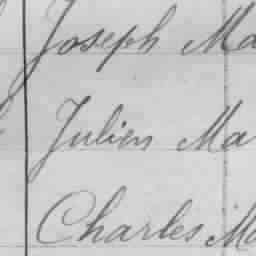 Joseph Ma
Julien Ma
Charles Ma